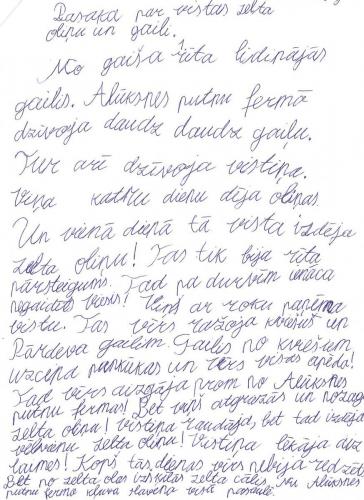 Pasaka par vistas zelta
oliņu un gaili.
No gaiša rīta lidinājās
gailis. Alūksnes putnu fermā
dzīvoja daudz daudz gaiļu.
Tur arī dzīvoja vistiņa.
Viņa katru dienu dēja oliņas
Un vienā dienā tā vista izdēja
zelta oliņu! Tas tik bija rīta
pārsteigums. Tad pa durvīm ienāca
negaidīts viesis! Viņš ar roku paņēma
vistu. Tas vīrs ražoja kviešus un
Pārdeva gaiļiem. Gailis no kviešiem
uzcepa pankūkas un vērs visas apēda!
Tad vīrs aizgāja prom no Alūksnes
putnu fermas! Bet viņš atgriezās un nozaga
zelta oliņu! Vistiņa raudāja, bet tad izdēja
vēlvienu zelta oliņu! Vistiņa lēkāja aiz
laimes! Kopš tās dienas vīrs nebija redzēts
Bet no zelta olas izšķīlās zelta cālis, Alūksnes
putnu ferma kļuva slavena visā pasaulē.